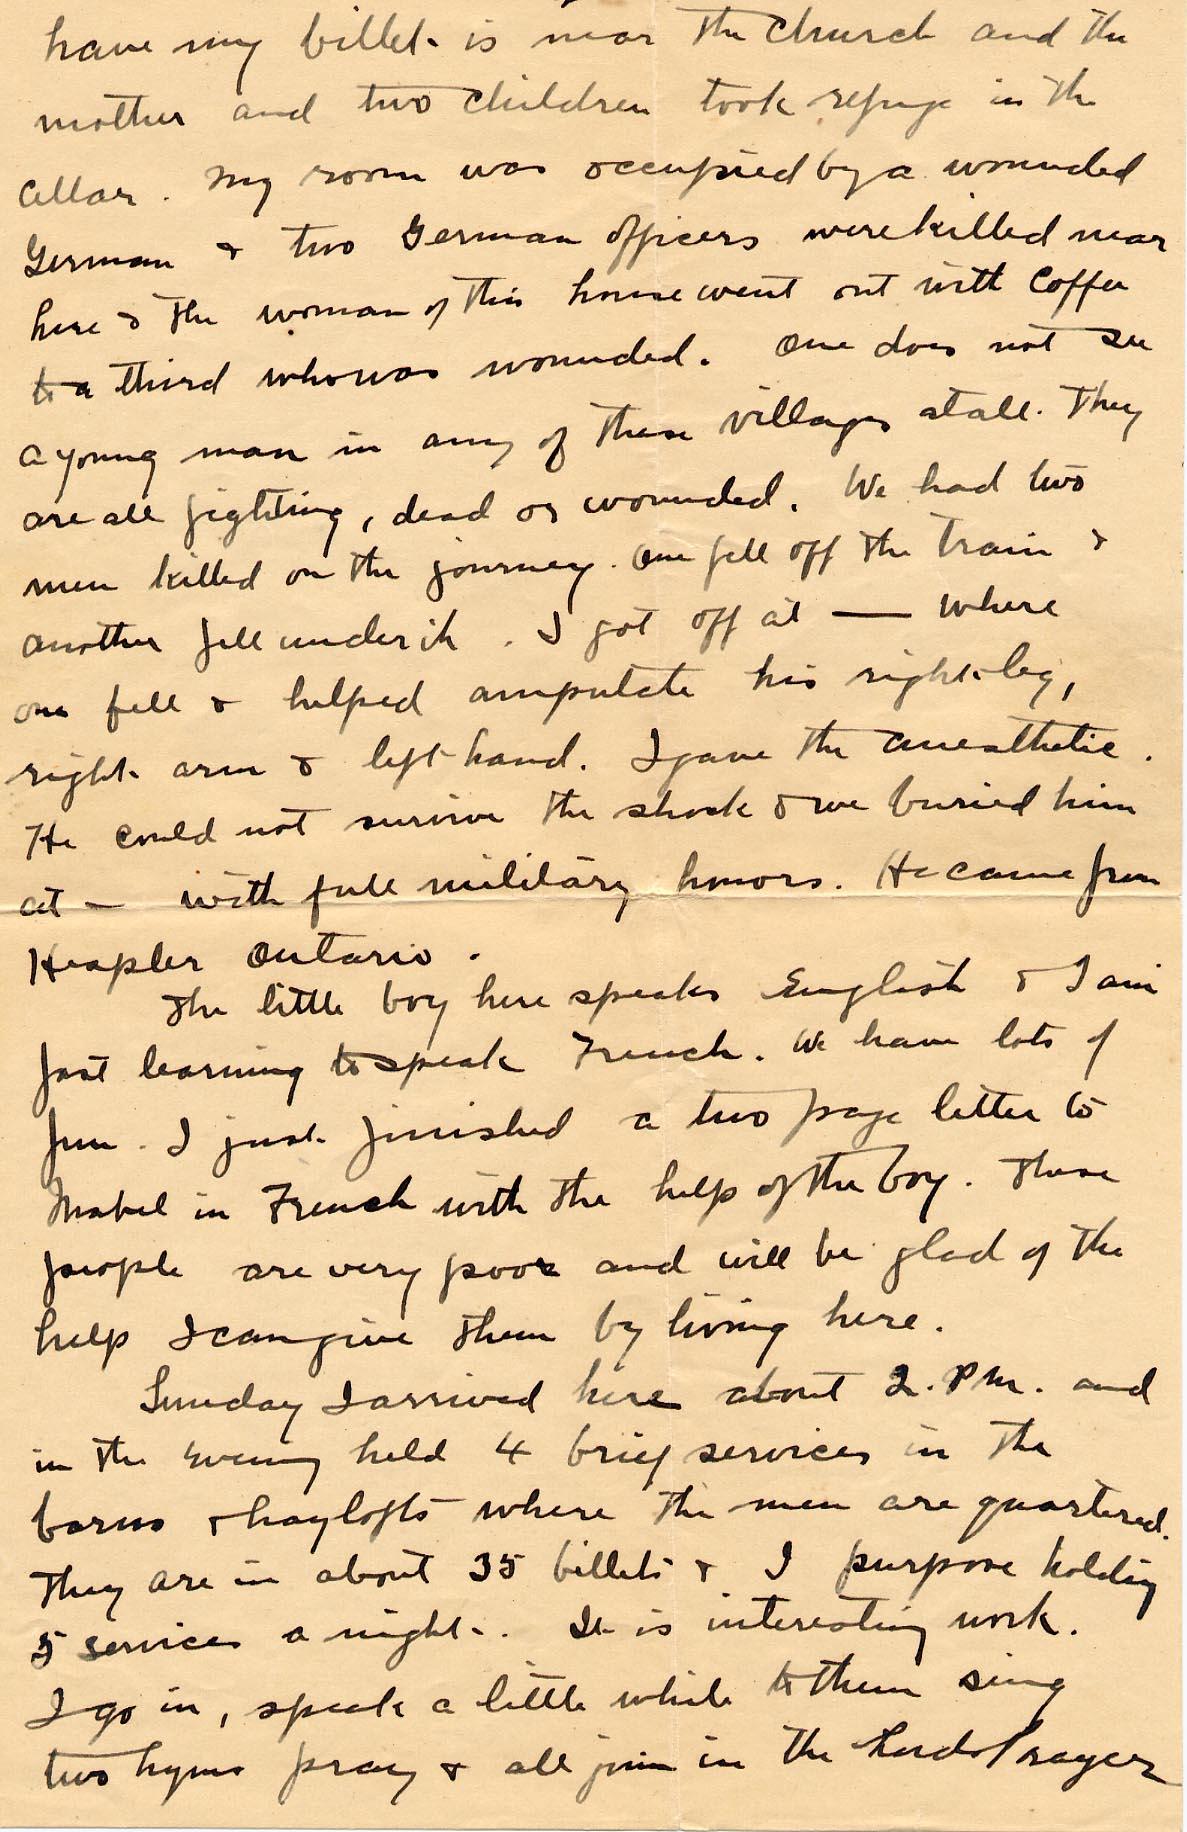 have my billet is near the church and the
mother and two children took refuge in the
cellar. My room was occupied by a wounded
German & two German officers were killed near
here & the woman of this house went out with coffee
to a third who was wounded. One does not see
a young man in any of these villages at all. They
are all fighting, dead or wounded. We had two
men killed on the journey. One fell off the train &
another fell under it. I got off at — where
one fell & helped amputate his right leg,
right arm & left hand. I gave the anesthetic.
He could not survive the shock & we buried him
at — with full military honors. He came from
Hespler Ontario.
The little boy here speaks English & I am
fast learning to speak French. We have lots of
fun. I just finished a two page letter to
Mabel in French with the help of the boy. These
people are very poor and will be glad of the
help I can give them by living here.
Sunday I arrived here about 2. P.M. and
in the evening held 4 brief services in the
barns & haylofts where the men are quartered.
They are in about 35 billets & I purpose holding
5 services a night. It is interesting work.
I go in, speak a little while to them sing
two hyms pray & all join in the Lords Prayer